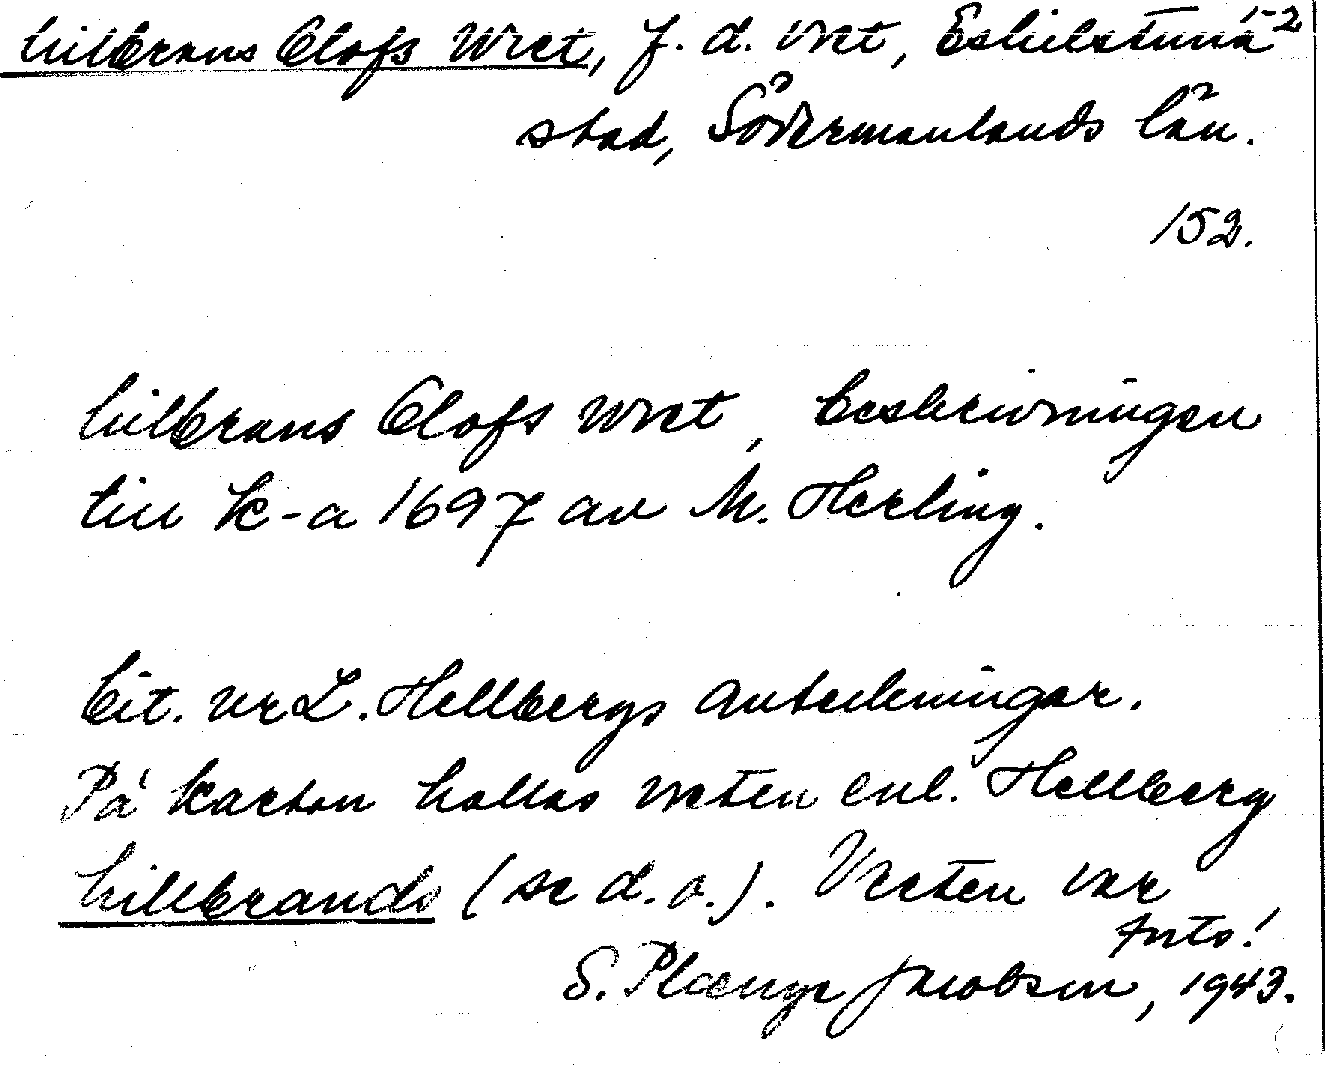 hilbrans Olofs Wret, f. d. vret, Eskilstuna 152
stad, Södermanlands län.
152.
hilbrans Olofs Wret, beskrivningen
till k-a 1697 av M. Herling.
Cit. ur L. Hellbergs anteckningar.
På kartan kallas vreten enl. Hellberg
hillbrands (se d. o.). Vreten var
S. Plænge Jacobson, 1943.